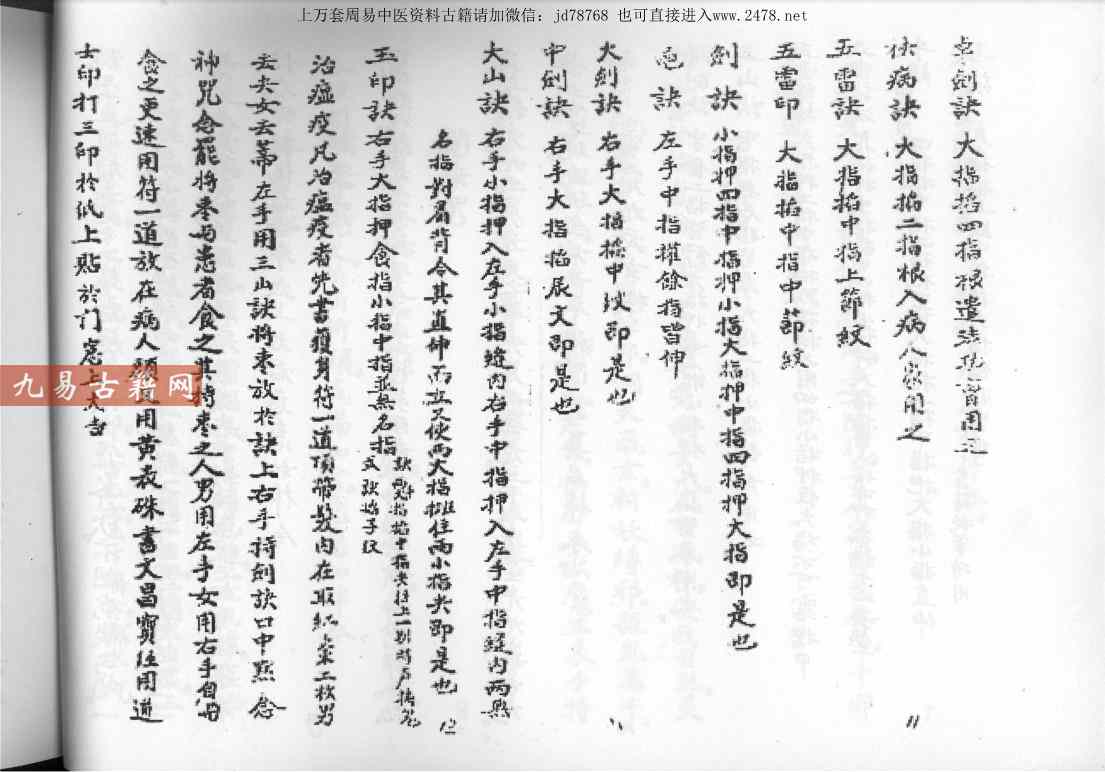 上万套周易中医资料古籍请加微信：jd78768 也可直接进入www.2478.net
卓劍訣 大指掐四指根遣法用之
伏病訣 大指掐二指根入病人家用之
五雷訣 大指掐中指上節紋
五雷印 大指掐中指中節紋
劍訣 小指押四指中指押小指大指押中指四指押大指即是也
訣 左手中指擢餘指皆伸
火劍訣 右手大指掐中纹即是也
中劍訣 右手大指掐辰文即是也
大山訣 右手小指押入左手小指縫内右手中指押入左手中指縫内两無
名指對肩背令其直伸而立又使两大指捱住两小指尖即是也
玉印訣 右手大指押食指小指中指並無名指
文 訣掐子纹
治瘟疫凡治瘟疫者先書護身符一道頂带髮内在取紅棗二枚男
去尖女去蒂左手用三山訣将枣放於訣上右手掐劍訣口中默念
神咒念罷将枣与患者食之其持枣之人男用左手女用右手自
食之更速用符一道放在病人頭 用黄表硃書文昌寶 用道
士印打三印於纸上貼於门窓上大吉
11
12
九易古籍网